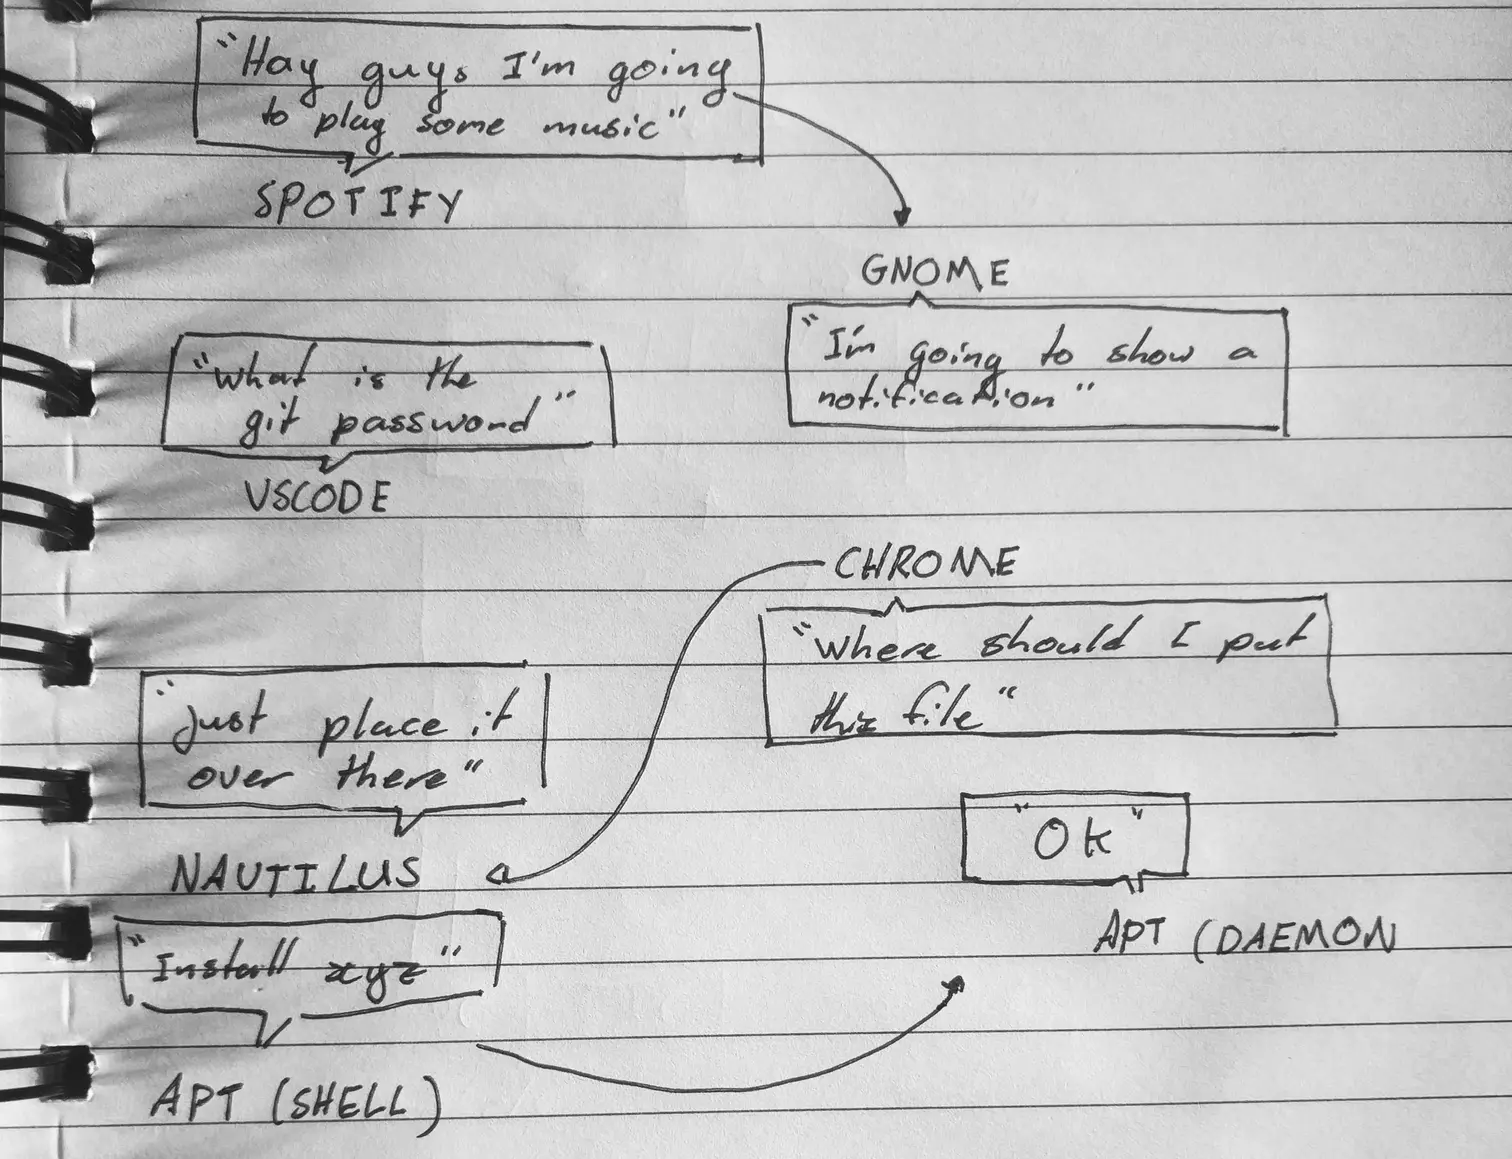 "Hay guys I'm going
to play some music"
SPOTIFY
GNOME
"I'm going to show a
notification"
"what is the
git password"
VSCODE
CHROME
"where should I put
this file"
"just place it
over there"
NAUTILUS
"Ok"
APT (DAEMON
"Install xyz"
APT (SHELL)